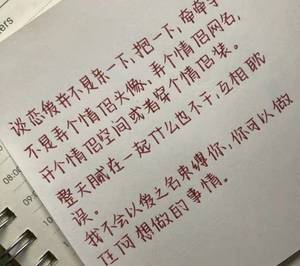 谈恋爱并不是亲一下,抱一下,牵牵手
不是弄个情侣头像、弄个情侣网名,
开个情侣空间或者穿个情侣装。
整天腻在一起什么也不干,互相耽
误。
我不会以爱之名束缚你,你可以做
任何想做的事情。
08:00